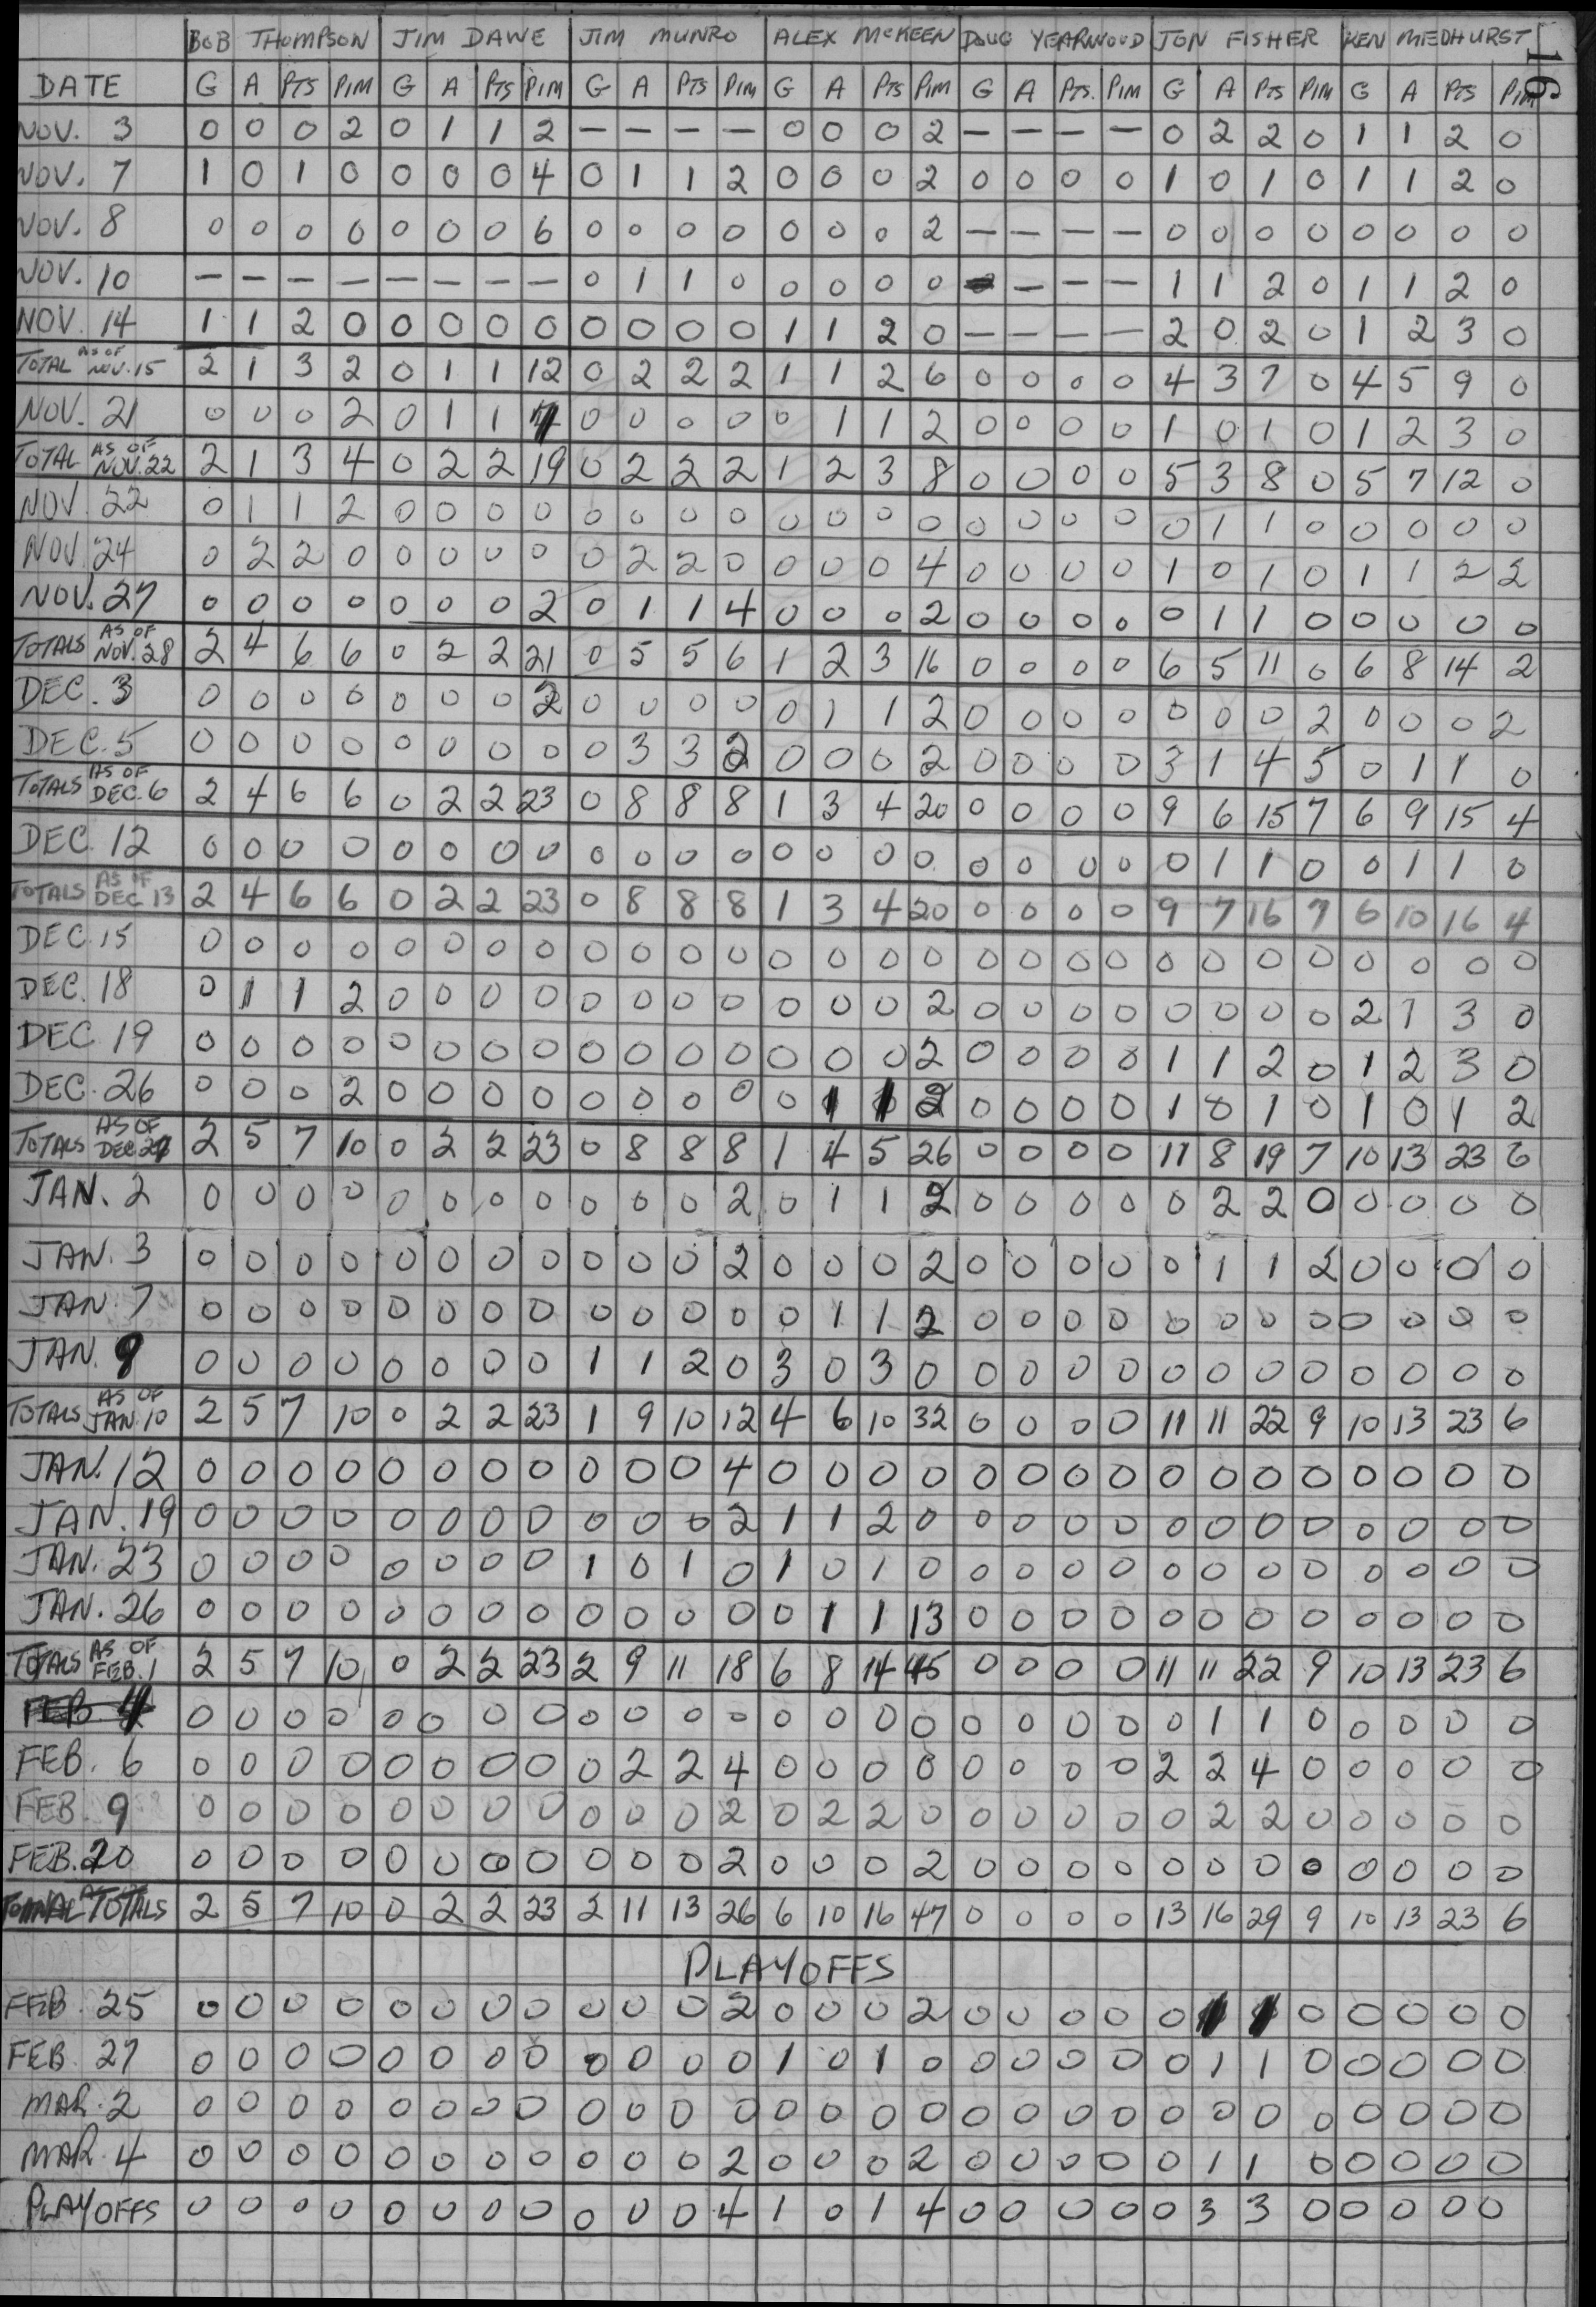 16
BOB THOMPSON JIM DAWE JIM MUNRO ALEX McKEEN DOUG YEARWOOD JON FISHER KEN MEDHURST
DATE G A PTS PIM G A PTS PIM G A PTS PIM G A PTS PIM G A PTS. PIM G A PTS PIM G A PTS PIM
NOV. 3 0 0 0 2 0 1 1 2 — — — — 0 0 0 2 — — — — 0 2 2 0 1 1 2 0
NOV. 7 1 0 1 0 0 0 0 4 0 1 1 2 0 0 0 2 0 0 0 0 1 0 1 0 1 1 2 0
NOV. 8 0 0 0 0 0 0 0 6 0 0 0 0 0 0 0 2 — — — — 0 0 0 0 0 0 0 0
NOV. 10 — — — — — — — — 0 1 1 0 0 0 0 0 — — — — 1 1 2 0 1 1 2 0
NOV. 14 1 1 2 0 0 0 0 0 0 0 0 0 1 1 2 0 — — — — 2 0 2 0 1 2 3 0
TOTAL AS OF NOV. 15 2 1 3 2 0 1 1 12 0 2 2 2 1 1 2 6 0 0 0 0 4 3 7 0 4 5 9 0
NOV. 21 0 0 0 2 0 1 1 7 0 0 0 0 0 1 1 2 0 0 0 0 1 0 1 0 1 2 3 0
TOTAL AS OF NOV. 22 2 1 3 4 0 2 2 19 0 2 2 2 1 2 3 8 0 0 0 0 5 3 8 0 5 7 12 0
NOV. 22 0 1 1 2 0 0 0 0 0 0 0 0 0 0 0 0 0 0 0 0 0 1 1 0 0 0 0 0
NOV. 24 0 2 2 0 0 0 0 0 0 2 2 0 0 0 0 4 0 0 0 0 1 0 1 0 1 1 2 2
NOV. 27 0 0 0 0 0 0 0 2 0 1 1 4 0 0 0 2 0 0 0 0 0 1 1 0 0 0 0 0
TOTALS AS OF NOV. 28 2 4 6 6 0 2 2 21 0 5 5 6 1 2 3 16 0 0 0 0 6 5 11 0 6 8 14 2
DEC. 3 0 0 0 0 0 0 0 2 0 0 0 0 0 1 1 2 0 0 0 0 0 0 0 2 0 0 0 2
DEC. 5 0 0 0 0 0 0 0 0 0 3 3 2 0 0 0 2 0 0 0 0 3 1 4 5 0 1 1 0
TOTALS AS OF DEC. 6 2 4 6 6 0 2 2 23 0 8 8 8 1 3 4 20 0 0 0 0 9 6 15 7 6 9 15 4
DEC. 12 0 0 0 0 0 0 0 0 0 0 0 0 0 0 0 0 0 0 0 0 0 1 1 0 0 1 1 0
TOTALS AS OF DEC 13 2 4 6 6 0 2 2 23 0 8 8 8 1 3 4 20 0 0 0 0 9 7 16 7 6 10 16 4
DEC. 15 0 0 0 0 0 0 0 0 0 0 0 0 0 0 0 0 0 0 0 0 0 0 0 0 0 0 0 0
DEC. 18 0 1 1 2 0 0 0 0 0 0 0 0 0 0 0 2 0 0 0 0 0 0 0 0 2 1 3 0
DEC 19 0 0 0 0 0 0 0 0 0 0 0 0 0 0 0 2 0 0 0 0 1 1 2 0 1 2 3 0
DEC. 26 0 0 0 2 0 0 0 0 0 0 0 0 0 1 1 2 0 0 0 0 1 0 1 0 1 0 1 2
TOTALS AS OF DEC 2 5 7 10 0 2 2 23 0 8 8 8 1 4 5 26 0 0 0 0 11 8 19 7 10 13 23 6
JAN. 2 0 0 0 0 0 0 0 0 0 0 0 2 0 1 1 2 0 0 0 0 0 2 2 0 0 0 0 0
JAN. 3 0 0 0 0 0 0 0 0 0 0 0 2 0 0 0 2 0 0 0 0 0 1 1 2 0 0 0 0
JAN. 7 0 0 0 0 0 0 0 0 0 0 0 0 0 1 1 2 0 0 0 0 0 0 0 0 0 0 0 0
JAN. 9 0 0 0 0 0 0 0 0 1 1 2 0 3 0 3 0 0 0 0 0 0 0 0 0 0 0 0 0
TOTALS AS OF JAN. 10 2 5 7 10 0 2 2 23 1 9 10 12 4 6 10 32 0 0 0 0 11 11 22 9 10 13 23 6
JAN. 12 0 0 0 0 0 0 0 0 0 0 0 4 0 0 0 0 0 0 0 0 0 0 0 0 0 0 0 0
JAN. 19 0 0 0 0 0 0 0 0 0 0 0 2 1 1 2 0 0 0 0 0 0 0 0 0 0 0 0 0
JAN. 23 0 0 0 0 0 0 0 0 1 0 1 0 1 0 1 0 0 0 0 0 0 0 0 0 0 0 0 0
JAN. 26 0 0 0 0 0 0 0 0 0 0 0 0 0 1 1 13 0 0 0 0 0 0 0 0 0 0 0 0
TOTALS AS OF FEB. 1 2 5 7 10 0 2 2 23 2 9 11 18 6 8 14 45 0 0 0 0 11 11 22 9 10 13 23 6
FEB. 4 0 0 0 0 0 0 0 0 0 0 0 0 0 0 0 0 0 0 0 0 0 1 1 0 0 0 0 0
FEB. 6 0 0 0 0 0 0 0 0 0 2 2 4 0 0 0 0 0 0 0 0 2 2 4 0 0 0 0 0
FEB. 9 0 0 0 0 0 0 0 0 0 0 0 2 0 2 2 0 0 0 0 0 0 2 2 0 0 0 0 0
FEB. 20 0 0 0 0 0 0 0 0 0 0 0 2 0 0 0 2 0 0 0 0 0 0 0 0 0 0 0 0
TOTALS 2 5 7 10 0 2 2 23 2 11 13 26 6 10 16 47 0 0 0 0 13 16 29 9 10 13 23 6
PLAYOFFS
FEB. 25 0 0 0 0 0 0 0 0 0 0 0 2 0 0 0 2 0 0 0 0 0 1 1 0 0 0 0 0
FEB. 27 0 0 0 0 0 0 0 0 0 0 0 0 1 0 1 0 0 0 0 0 0 1 1 0 0 0 0 0
MAR. 2 0 0 0 0 0 0 0 0 0 0 0 0 0 0 0 0 0 0 0 0 0 0 0 0 0 0 0 0
MAR. 4 0 0 0 0 0 0 0 0 0 0 0 2 0 0 0 2 0 0 0 0 0 1 1 0 0 0 0 0
PLAYOFFS 0 0 0 0 0 0 0 0 0 0 0 4 1 0 1 4 0 0 0 0 0 3 3 0 0 0 0 0